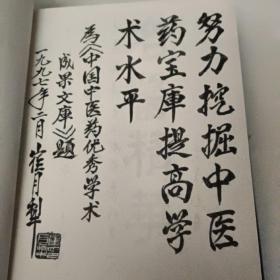 努力挖掘中医
药宝庫提高学
术水平
为《中国中医药优秀学术
成果文庫》题
一九九七年二月 崔月犁